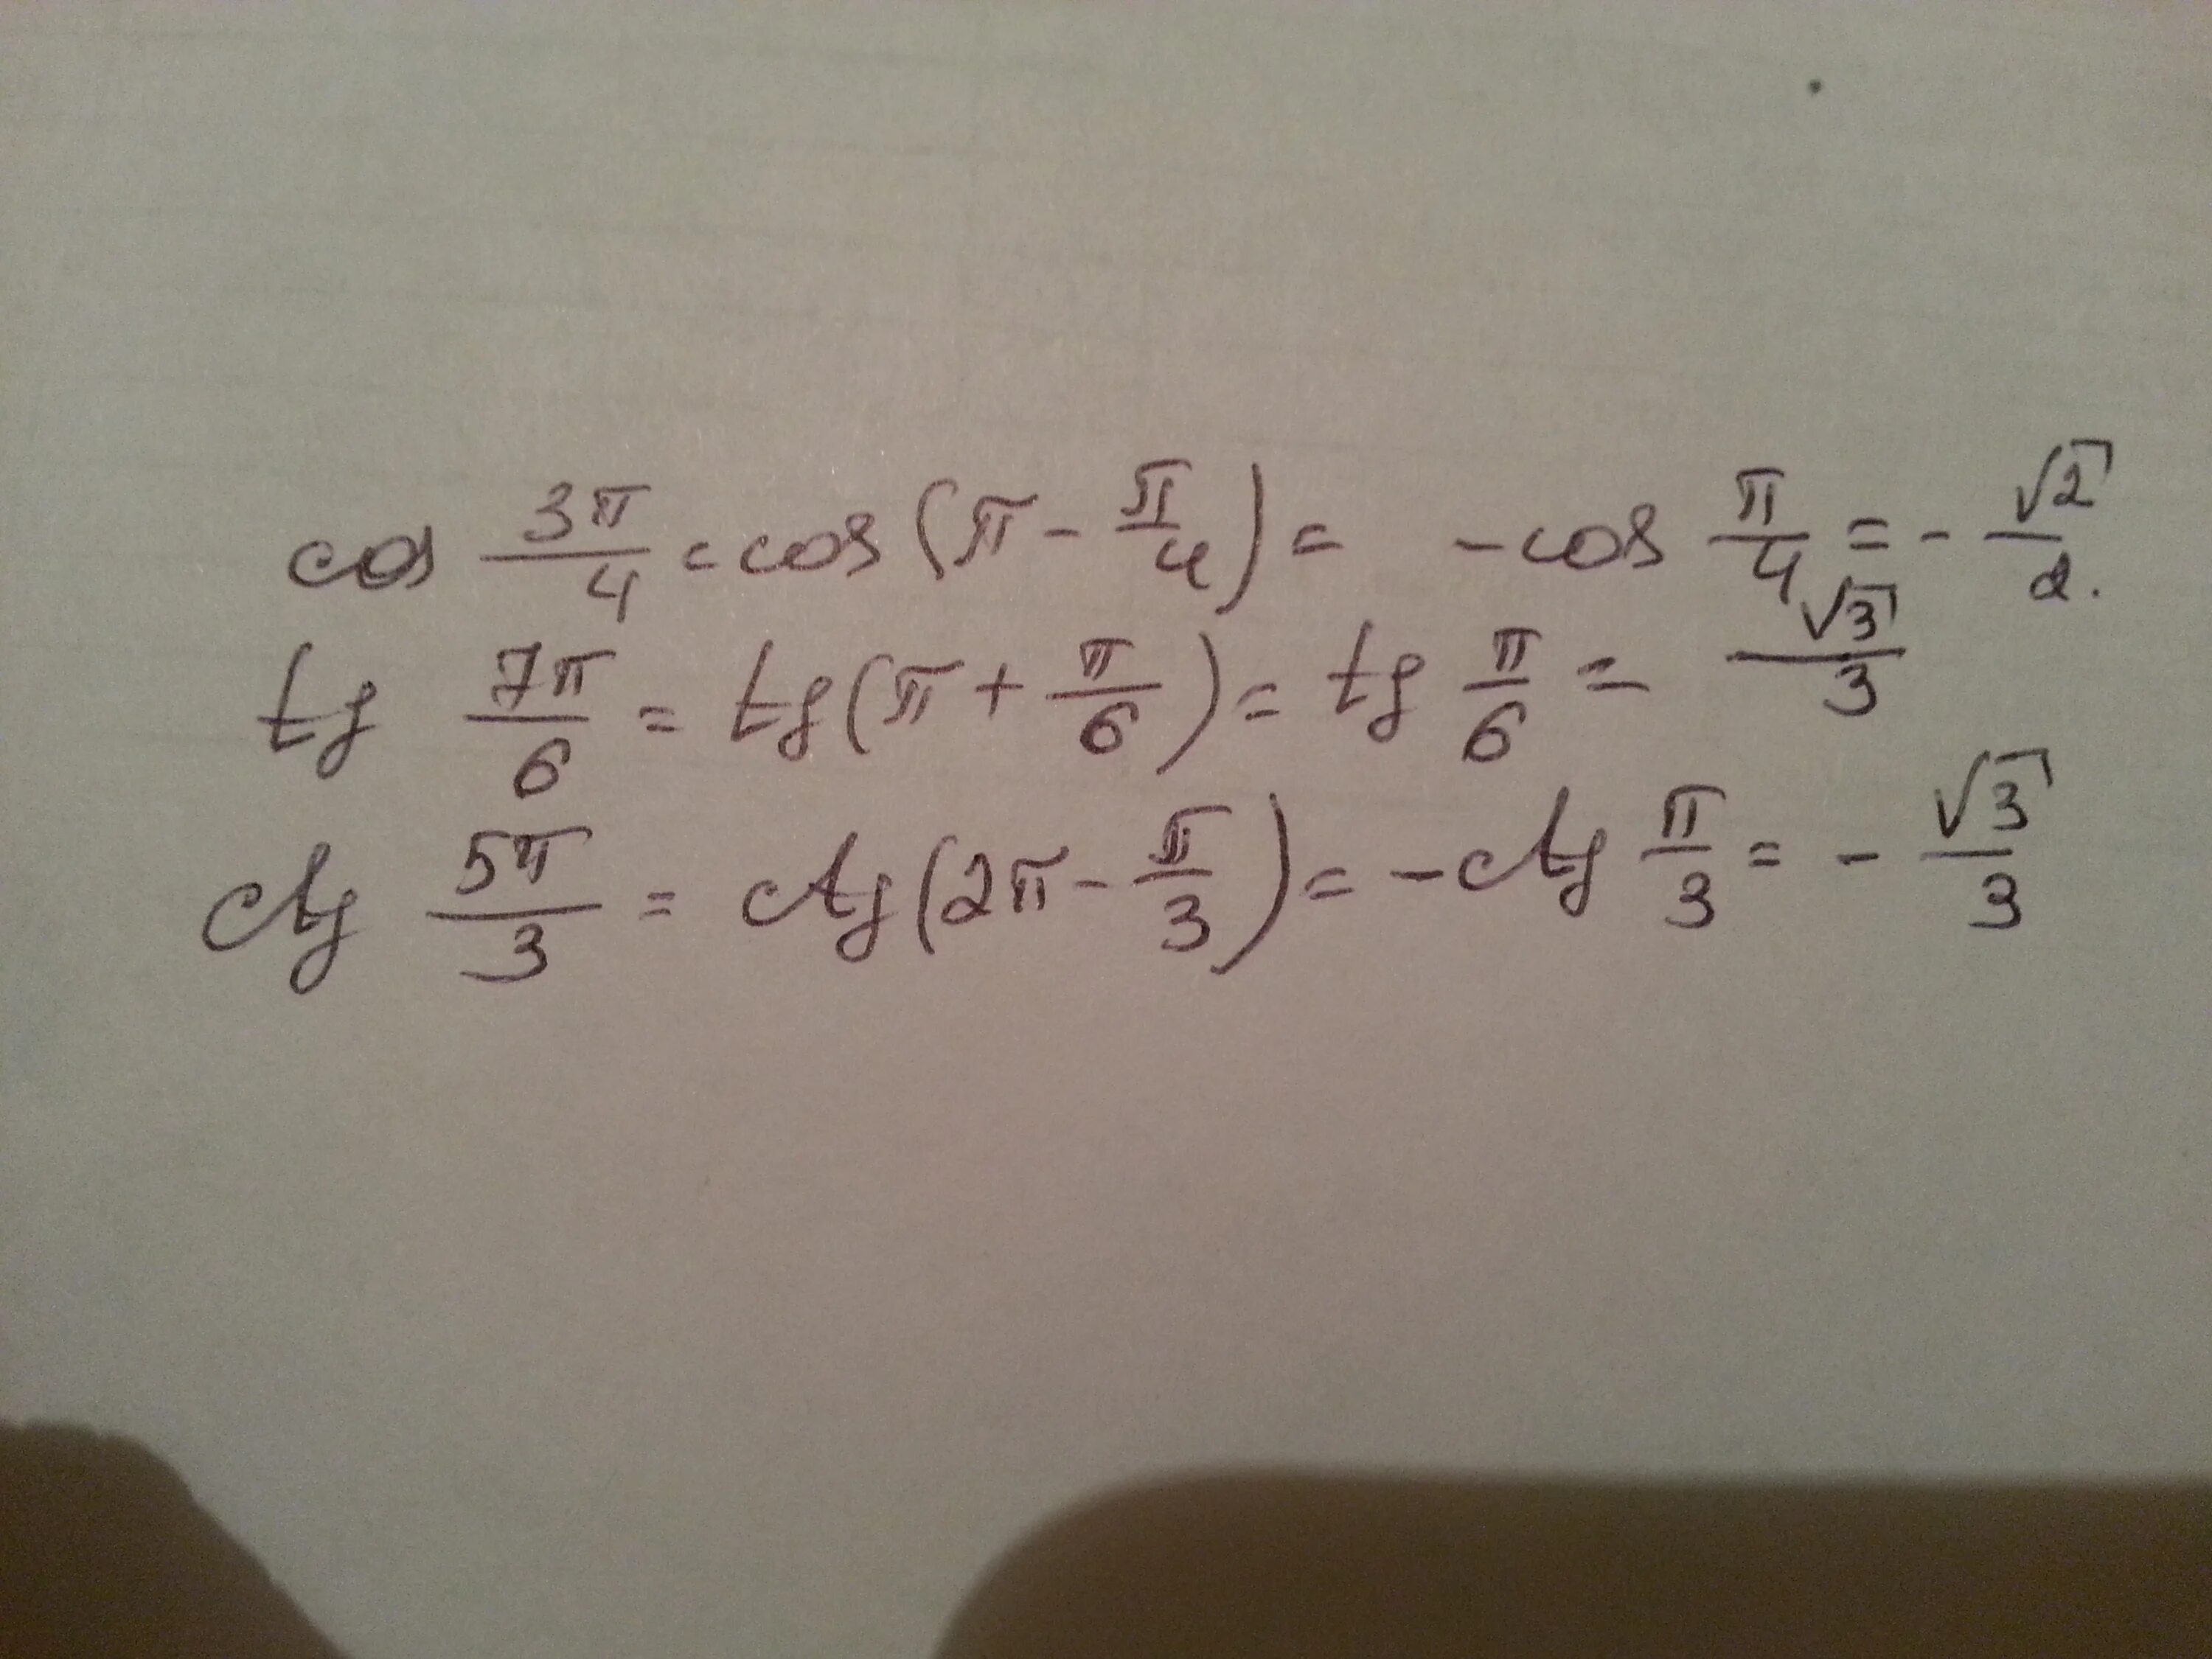 cos 3π/4 = cos(π - π/4) = - cos π/4 = - √2/2.
tg 7π/6 = tg(π + π/6) = tg π/6 = √3/3
ctg 5π/3 = ctg(2π - π/3) = - ctg π/3 = - √3/3